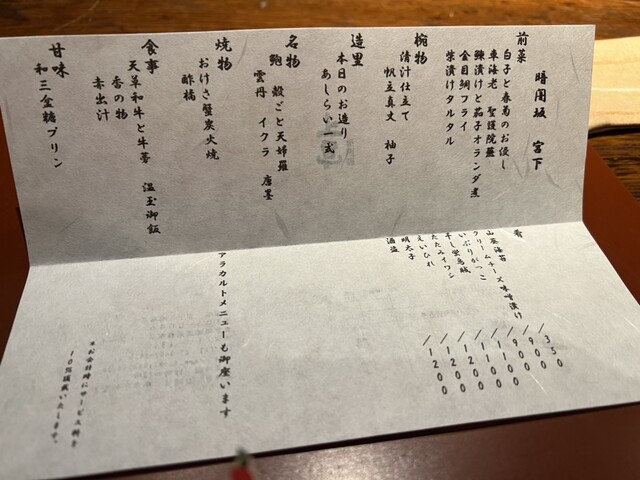 暗闇坂 宮下
前菜
白子と春菊のお浸し
車海老 聖護院蕪
鰊漬けと茄子オランダ煮
金目鯛フライ
柴漬けタルタル
椀物
清汁仕立て
帆立真丈 柚子
造里
本日のお造り
あしらい一式
名物
鮑 殻ごと天婦羅
雲丹 イクラ 唐墨
焼物
おけさ蟹炭火焼
酢橘
食事
天草和牛と牛蒡 温玉御飯
香の物
赤出汁
甘味
和三盆糖プリン
肴
山葵海苔
クリームチーズ味噌漬け
いぶりがっこ
干し蛍烏賊
たたみイワシ
えいひれ
明太子
酒盗
/350
/900
/900
/1100
/1100
/1200
/1200
アラカルトメニューも御座います
*お会計時にサービス料を
10%頂戴いたします。